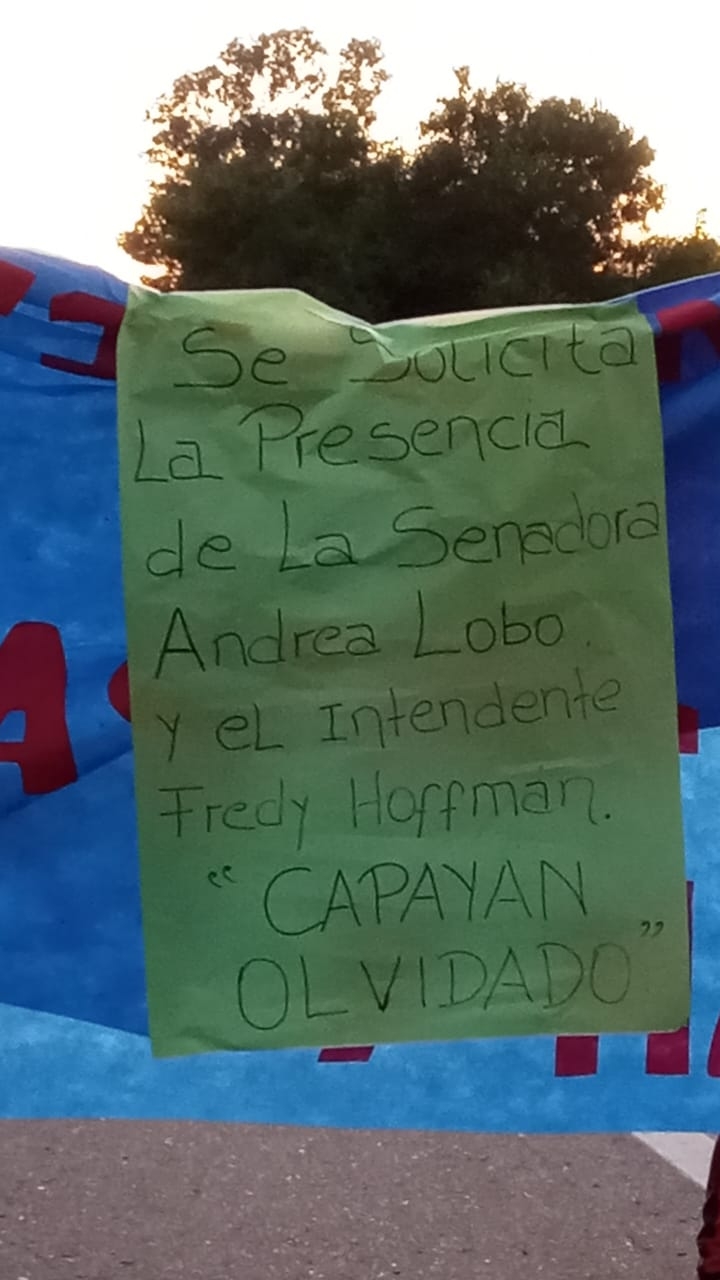 Se Solicita
La Presencia
de La Senadora
Andrea Lobo.
y eL Intendente
Fredy Hoffman.
"CAPAYAN
OLVIDADO"